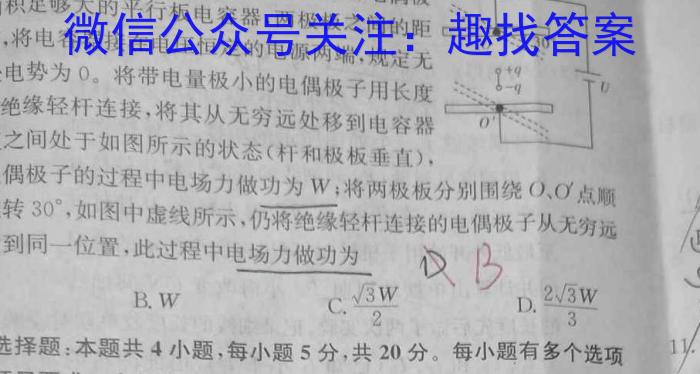 积足够大的平行板电容器,两极板之间的距
微信公众号关注：趣找答案
,将电容
的电源两端,规定无
电势为0。将带电量极小的电偶极子用长度
绝缘轻杆连接,将其从无穷远处移到电容器
之间处于如图所示的状态(杆和极板垂直),
偶极子的过程中电场力做功为W;将两极板分别围绕O、O'点顺
转30°,如图中虚线所示,仍将绝缘轻杆连接的电偶极子从无穷远
到同一位置,此过程中电场力做功为
D B
B. W
C. √3W/2
D. 2√3W/3
选择题:本题共4小题,每小题5分,共20分。每小题有多个选项
+q
-q
O'
U
11.